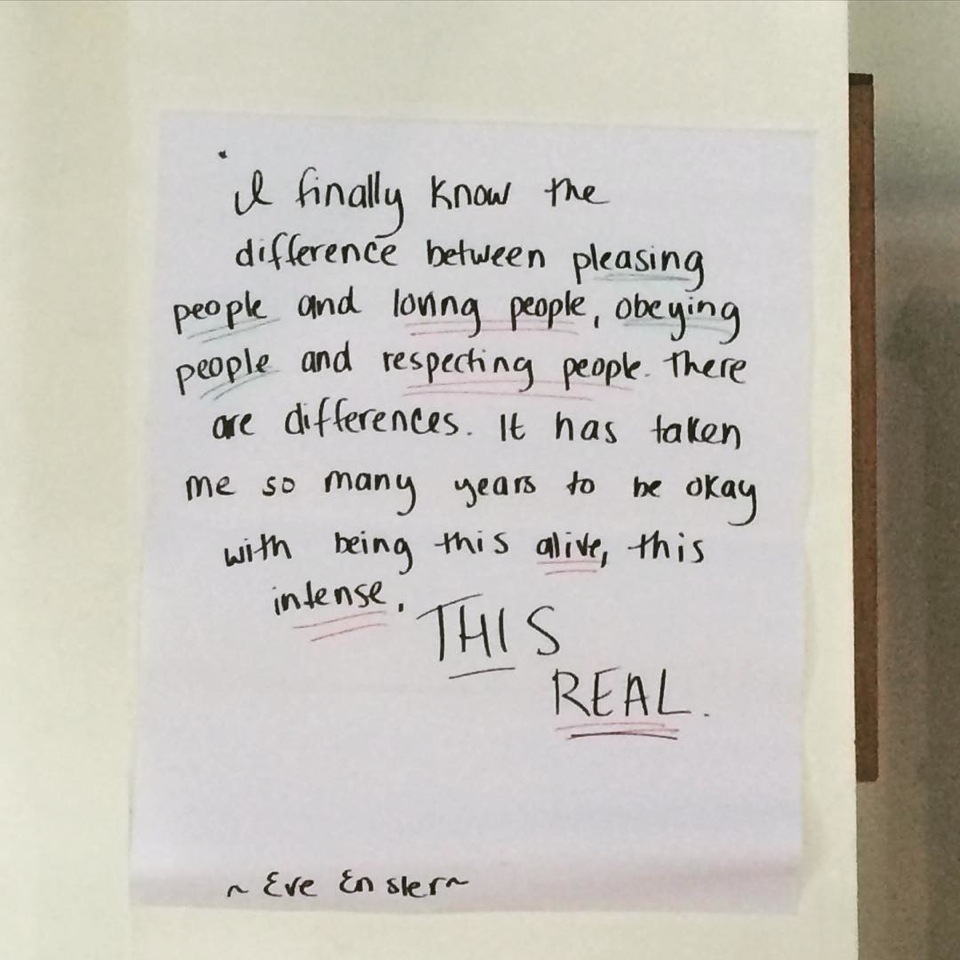 I finally know the
difference between pleasing
people and loving people, obeying
people and respecting people. There
are differences. It has taken
me so many years to be okay
with being this alive, this
intense, THIS
REAL.
~ Eve Ensler ~